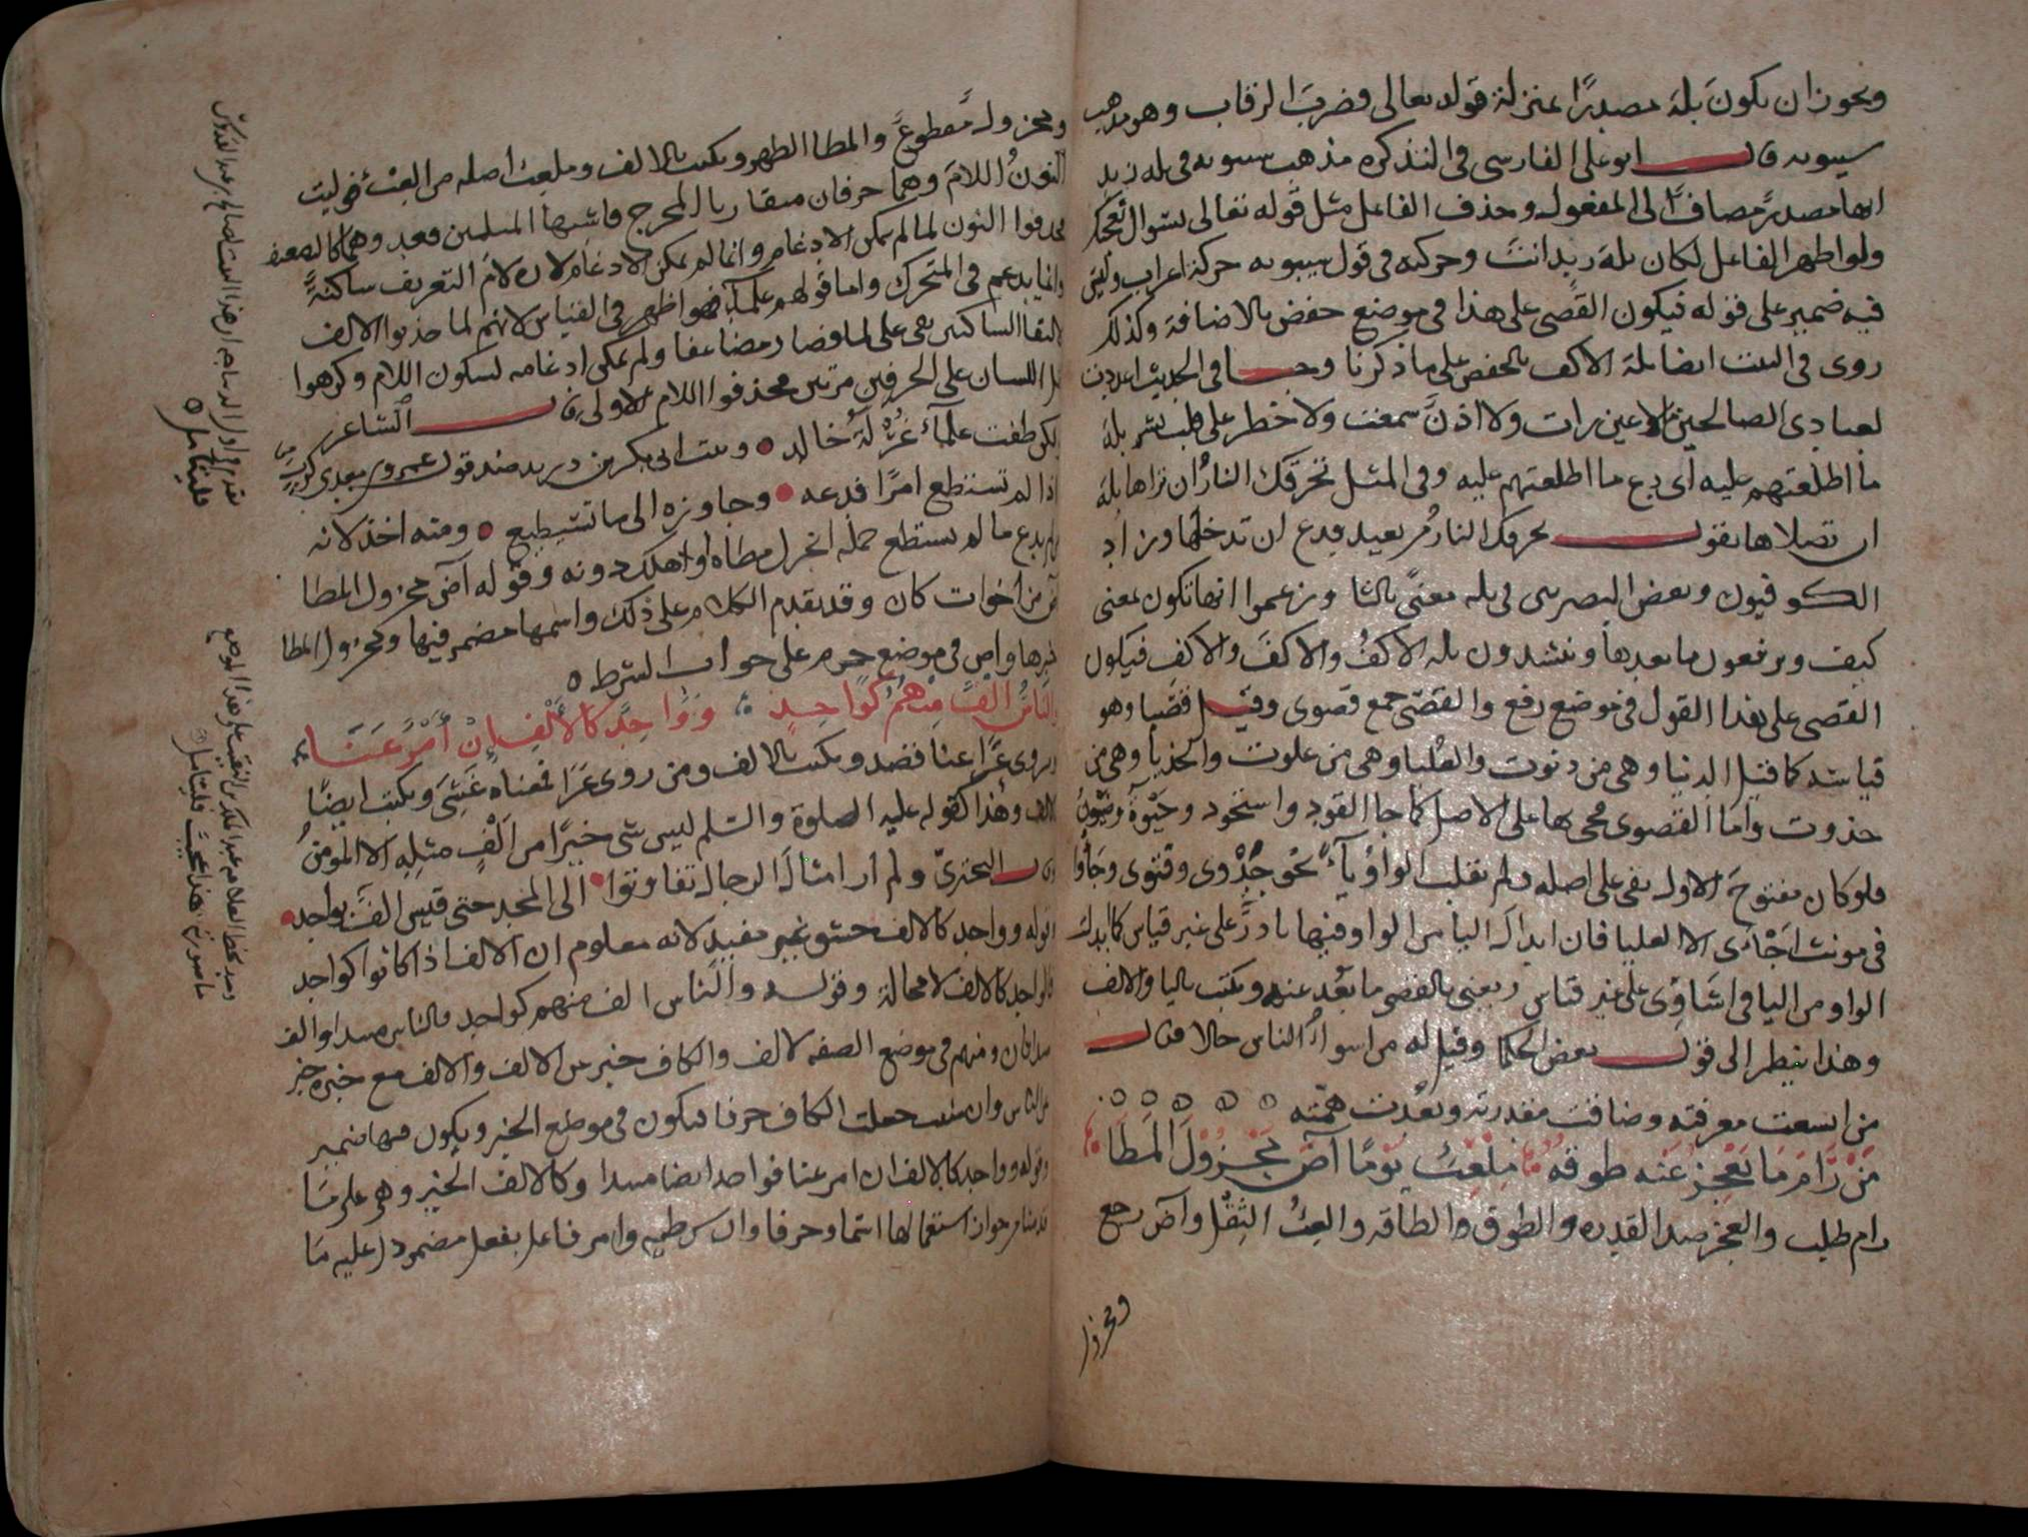 ويجوز ان يكون بله مصدرًا بمنزلة قوله تعالى فضرب الرقاب وهو مذهب
سيبويه قال ابو على الفارسى فى التذكره مذهب سيبويه فى بله زيد
انها مصدر مضاف الى المفعول وحذف الفاعل مثل قوله تعالى بسوال نعجتك
ولو اظهر الفاعل لكان بله زيد انت وحركته فى قول سيبويه حركة اعراب وليس
فيه ضمير على قوله فيكون القصى على هذا فى موضع خفض بالاضافة وكذلك
روى فى البيت ايضا بله الاكف بالخفض على ما ذكرنا وجا فى الحديث اعددت
لعبادى الصالحين مالا عين رات ولا اذن سمعت ولا خطر على قلب بشر بله
ما اطلعتهم عليه اى دع ما اطلعتهم عليه وفى المثل تحرقك النار ان تراها بله
ان تصلاها يقول تحرقك النار من بعيد فدع ان تدخلها وزاد
الكوفيون وبعض البصريين فى بله معنى ثالثا وزعموا انها تكون بمعنى
كيف ويرفعون ما بعدها وينشدون بله الاكفُ والاكفَ والاكفِ فيكون
القصى على هذا القول فى موضع رفع والقصى جمع قصوى وقيل قصيا وهو
قياسه كما قيل الدنيا وهى من دنوت والعليا وهى من علوت والحذيا وهى من
حذوت واما القصوى فجى بها على الاصل كما جا القود واستحوذ وحيوة وضيون
فلو كان مفتوح الاول بقى على اصله ولم تقلب الواو يآءً نحو وقنوى وجأوا
فى مونث اجأى الا العليا فان ابدال اليا من الواو فيها نادر على غير قياس كابدال
الواو من اليا فى اشاوى على غير قياس ويعنى بالقصى ما بعد عنه ويكتب باليا والالف
وهذا ينظر الى قول بعض الحكما وقيل له من اسوأ الناس حالا فقال
من اتسعت معرفته وضاقت مقدرته وبعدت همته
مَنْ رَامَ مَا يَعْجِزُ عَنْه طوقه مِلْعِبْءِ يَوْمًا آضَ مَجْزُوْلَ المَطَا
رام طلب والعجز ضد القدره والطوق والطاقه والعبء الثقل وآض رجع
ومجزول
ومجزول مقطوع والمطا الظهر ويكتب بالالف وملعبء اصله من العبء
النون اللام وهما حرفان متقاربا المخرج فاشبها المثلين
فحذفوا النون لما لم يمكن الادغام وانما لم يمكن الادغام لان لام التعريف ساكنة
وانما يدغم فى المتحرك واما قولهم علمآء فهو اظهر فى القياس لانهم لما حذفوا الالف
لالتقا الساكنين بقى علی لما فصار مضاعفا ولم يمكن ادغامه لسكون اللام وكرهوا
اللسان على الحرفين مرتين فحذفوا اللام الاولى قال الشاعر
طفت علمآء غُرلة خالد وبيت ابى بكر بن دريد ضد قول عمرو بن معدى كرب
اذا لم تستطع امرًا فدعه وجاوزه الى ما تستطيع ومنه اخذ لانه
لم يدع ما لم يستطع حمله انخزل مطاه او اهلك دونه وقوله آض مجزول المطا
آض من اخوات كان وقد تقدم الكلام على ذلك واسمها مضمر فيها ومجزول المطا
خبرها وآض فى موضع جزم على جواب الشرط
والنَّاسُ الفٌ مِنْهُمُ كَوَاحِدٍ وَوَاحِدٌ كَالأَلْفِ إنْ أَمْرٌ عَنَا
ويروى عزا عنا قصد ويكتب بالالف ومن روى عَرَا فمعناه غشى ويكتب ايضا
بالالف وهذا كقوله عليه الصلوة والسلم ليس شى خيرًا من الف مثله الا المومن
وقال البحترى ولم ار امثال الرجال تفاوتوا الى المجد حتى قيس الف بواحد
قوله وواحد كالالف حشو غير مفيد لانه معلوم ان الالف اذا كانوا كواحد
فالواحد كالالف لا محالة وقوله والناس الف منهم كواحد فالناس مبتدا والف
مبتدا ثان ومنهم فى موضع الصفه لالف والكاف خبر عن الالف والالف مع خبره خبر
عن الناس وان شئت جعلت الكاف حرفا فيكون فى موضع الخبر ويكون فيها ضمير
وقوله وواحد كالالف ان امر عنا فواحد ايضا مبتدا وكالالف الخبر وهى على ما
قدمنا من جواز استعمالها اسما وحرفا وان شرطيه وامر فاعل بفعل مضمر دل عليه ما
فليتامل
هذا عجيب فليتامل